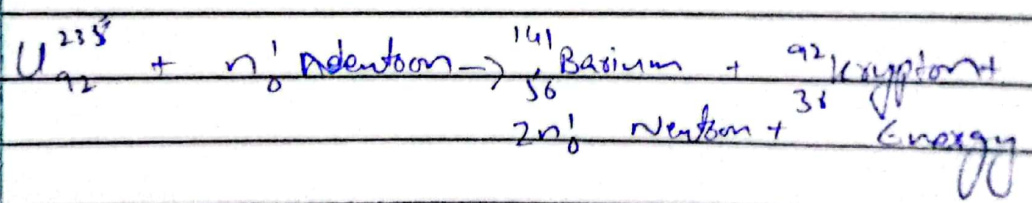 U₉₂²³⁵ + n₀¹ Neutron → ¹⁴¹₅₆Barium + ⁹²₃₆Krypton +
2n₀¹ Neutron + Energy